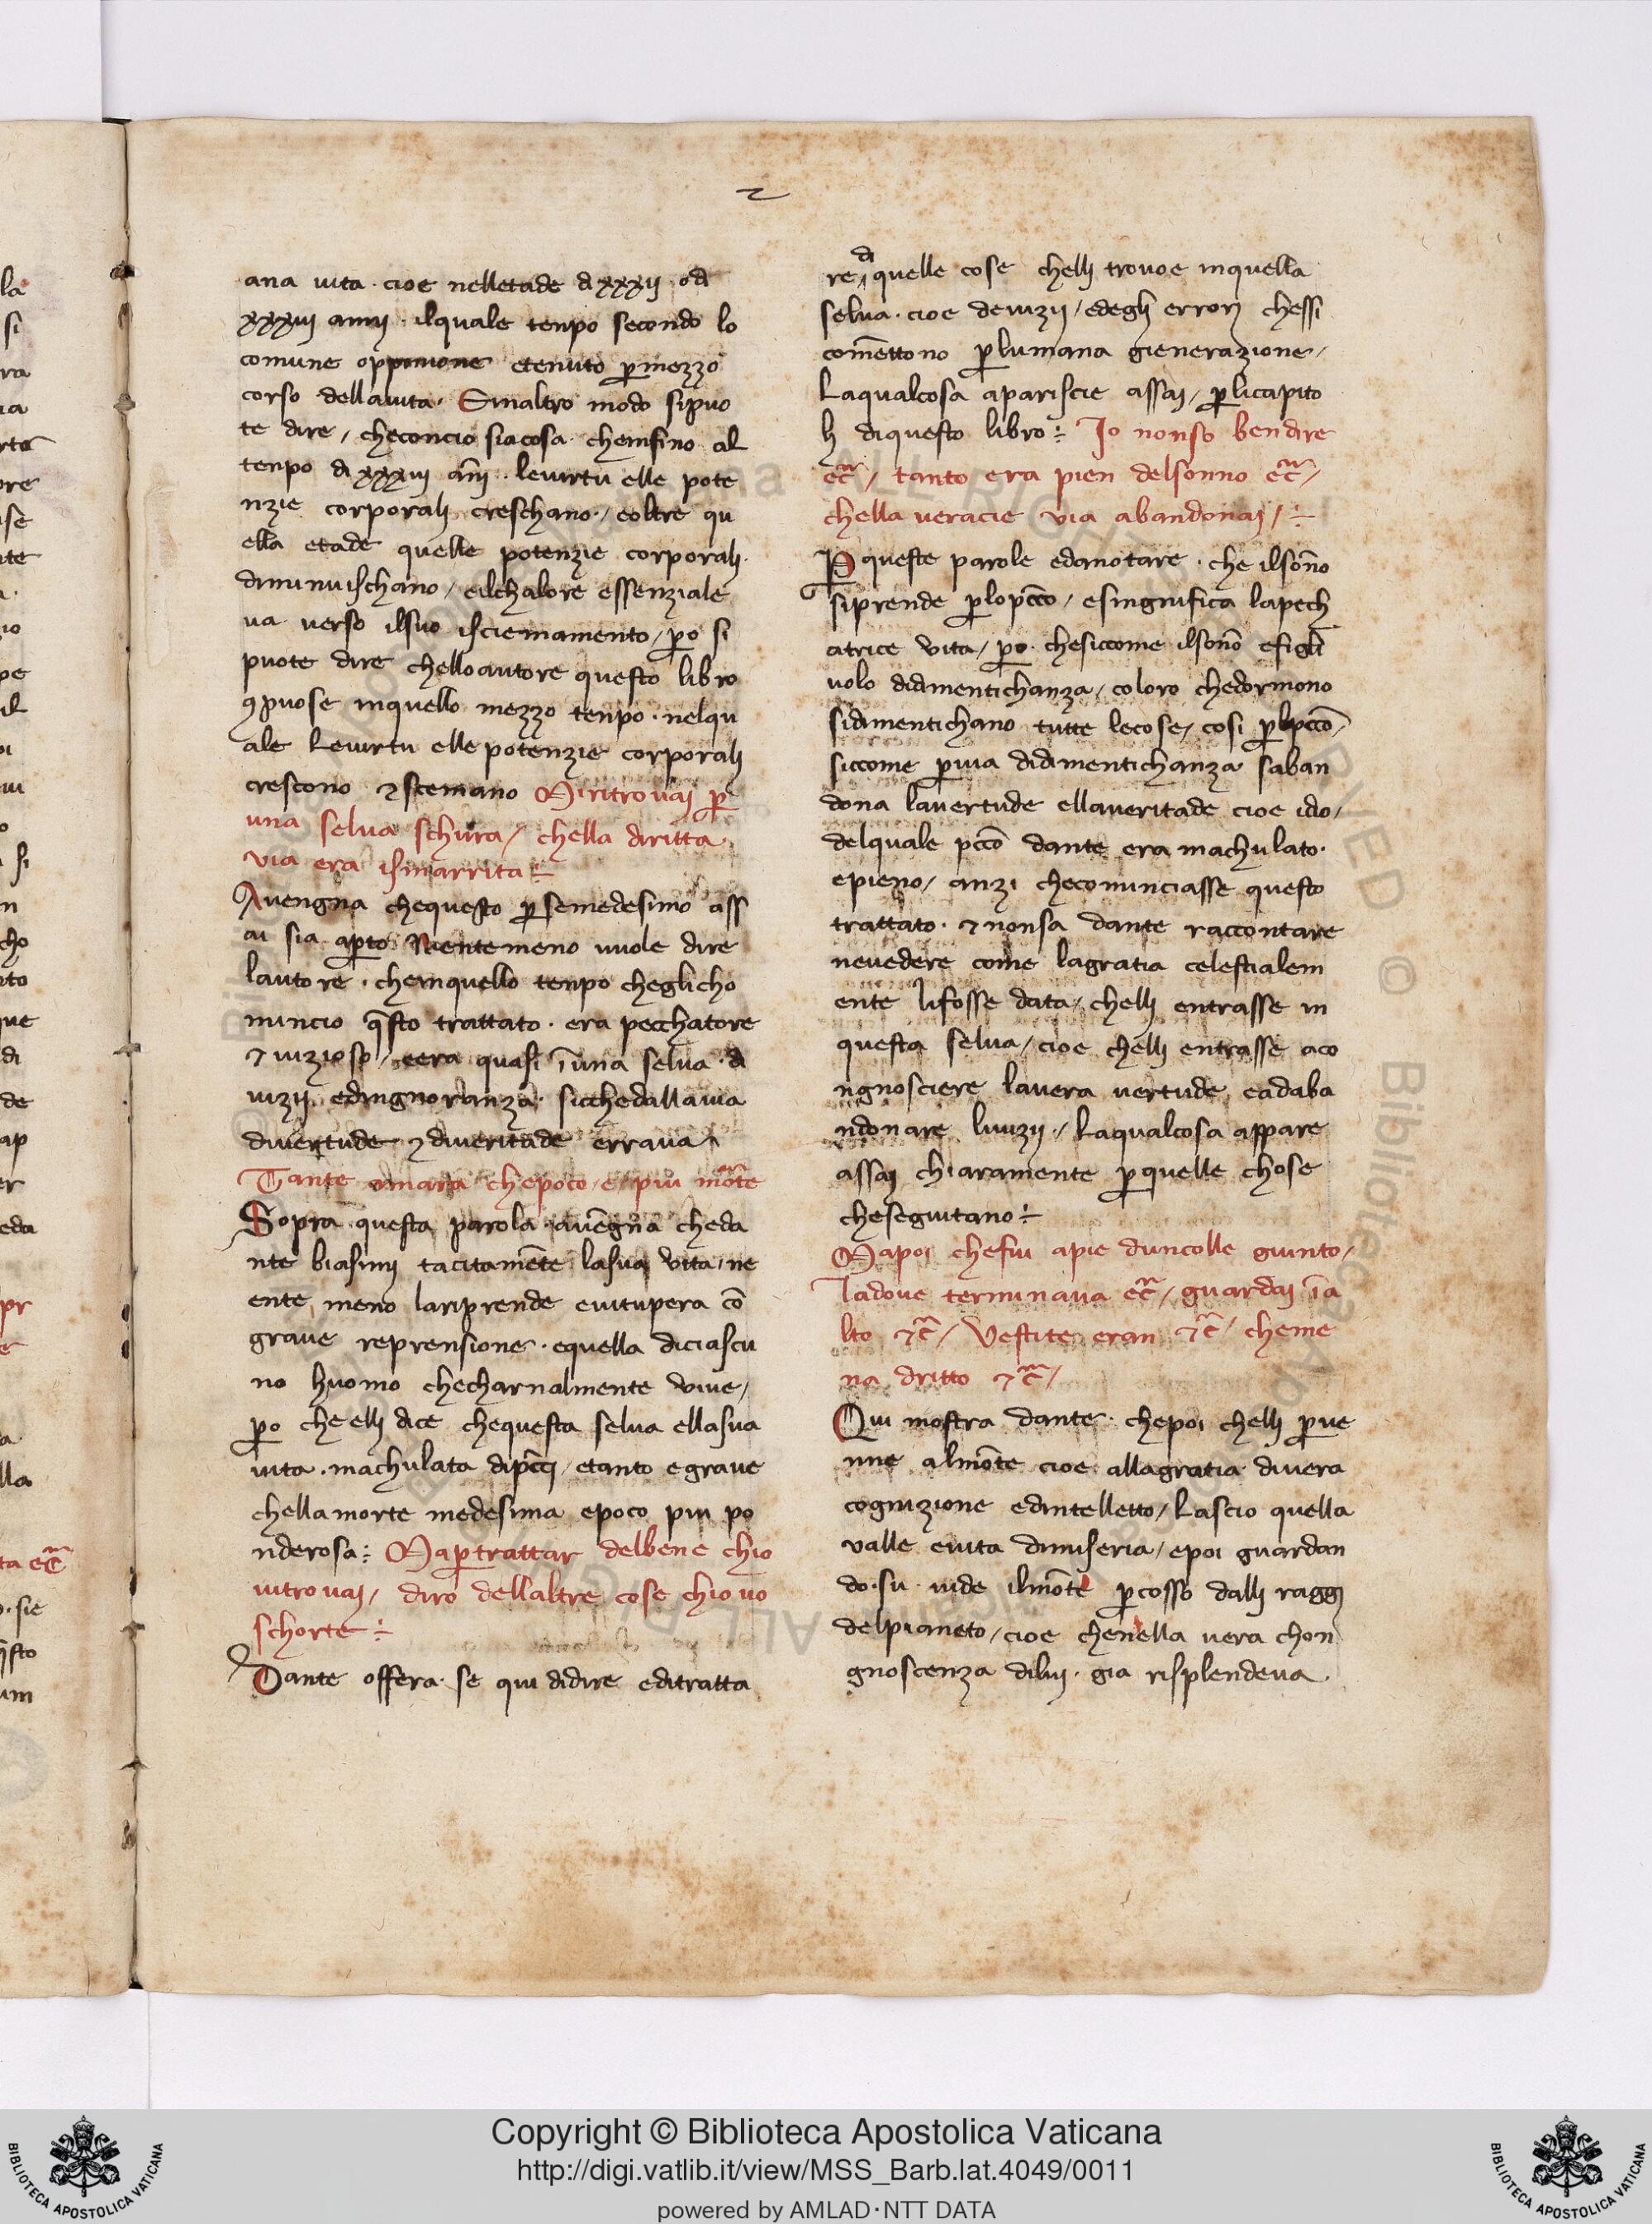 2
ana uita · cioe nelletade di xxxij · odi
xxxiij annij · ilquale tenpo secondo lo
comune oppinione etenuto ꝑmezzo
corso dellauita · Einaltro modo sipuo
te dire / checoncio siacosa · cheinfino al
tenpo di xxxiij ãnj · leuirtu elle pote
nzie corporalj creschano · / eoltre qu
ella etade quelle potenzie corporalj ·
diminuischano / eilchalore essenziale
ua uerso ilsuo isciemamento / ꝑo si
puote dire chelloautore questo libro
ꝯpuose inquello mezzo tenpo · nelqu
ale Leuirtu elle potenzie corporalj
crescono ⁊ scemano Miritrouaj ꝑ
una selua schura / chella diritta
uia era ismarrita ÷
Auengna chequesto ꝑsemedesimo ass
ai sia aꝑto Nientemeno uuole dire
lautore · cheinquello tenpo cheglicho
mincio q̃sto trattato · era pecchatore
⁊ uizioso / eera quasi ĩuna selua · di
uizij edingnoranza · sicchedallauia
diuertude ⁊ diueritade erraua
Tante amara chepoco e piu mõrte
Sopra questa parola auẽgna cheda
nte biasimj tacitamẽte lasua uita / ne
ente meno lariprende euitupera cõ
graue reprensione · equella diciascu
no huomo checharnalmente uiue /
ꝑo che ellj dice chequesta selua ellasua
uita · machulata dipc̃cj / etanto e graue
chellamorte medesima epoco piu po
nderosa : Maꝑtrattar delbene chio
uitrouaj / diro dellaltre cose chio uo
schorte ÷
Dante offera · se qui didire editratta
re di quelle cose chellj trouoe inquella
selua · cioe deuizij / edeglj errorj chessi
comẽttono ꝑlumana gienerazione /
Laqualcosa apariscie assaj / ꝑlicapito
lj diquesto libro : Io nonso bendire
ec̃ / tanto era pien delsonno ec̃ /
chella ueracie uia abandonaj / ÷
P queste parole edanotare · che ilsõno
siprende ꝑlopc̃co / esingnifica lapech
atrice uita / ꝑo · chesiccome ilsonõ efigli
uolo didimentichanza / coloro chedormono
sidimentichano tutte lecose / cosi ꝑlopc̃co /
siccome ꝑuia didimentichanza saban
dona lauertude ellaueritade cioe idio /
delquale pc̃co dante era machulato ·
epieno / anzi checominciasse questo
trattato · ⁊ nonsa dante raccontare
neuedere come lagratia celestialem
ente lifosse data / chellj entrasse in
questa selua / cioe chellj entrasse aco
ngnosciere lauera uertude eadaba
ndonare liuizij / Laqualcosa appare
assaj chiaramente ꝑquelle chose
cheseguitano ÷
Mapoi chefui apie duncolle giunto /
ladoue terminaua ec̃ / guardaj ĩa
lto ⁊c̃ / Vestite eran ⁊c̃ / cheme
na dritto ⁊c̃ /
Qui mostra dante · chepoi chellj ꝑue
nne almõte cioe allagratia diuera
cognizione edintelletto / Lascio quella
ualle euita dimiseria / epoi guardan
do · su · uide ilmõte ꝑcosso dallj raggj
delpianeto / cioe chenella uera chon
gnoscenza diluj · gia risplendeua ·
Copyright © Biblioteca Apostolica Vaticana
http://digi.vatlib.it/view/MSS_Barb.lat.4049/0011
powered by AMLAD · NTT DATA
BIBLIOTECA APOSTOLICA VATICANA
BIBLIOTECA APOSTOLICA VATICANA